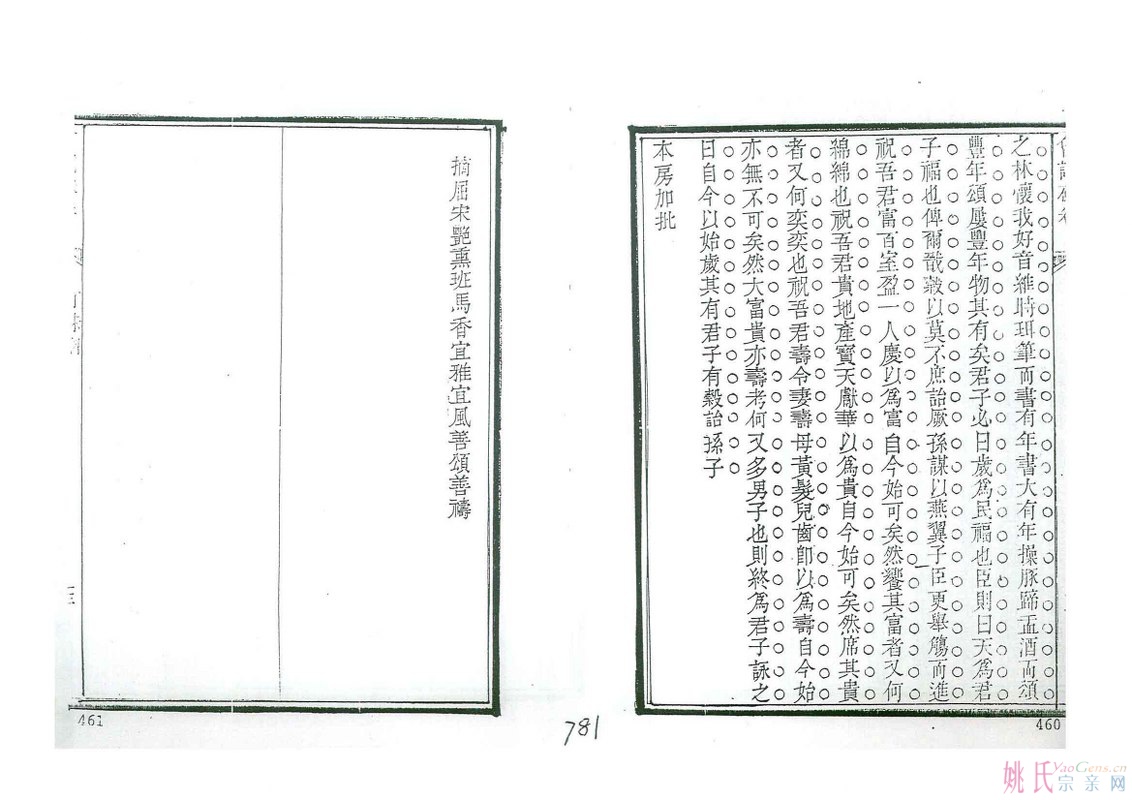 會試硃卷
之林懷我好音維時珥筆而書有年書大有年操豚蹄盂酒而頌
豐年頌屢豐年物其有矣君子必曰歲為民福也臣則曰天為君
子福也俾爾戩穀以莫不庶詒厥孫謀以燕翼子臣更舉觴而進
祝吾君富百室盈一人慶以為富自今始可矣然饗其富者又何
綿綿也祝吾君貴地產寶天獻華以為貴自今始可矣然席其貴
者又何奕奕也祝吾君壽令妻壽母黃髮兒齒即以為壽自今始
亦無不可矣然大富貴亦壽考何又多男子也則終為君子詠之
曰自今以始歲其有君子有穀詒孫子
本房加批
460
摘屈宋艷熏班馬香宜雅宜風善頌善禱
461
781
姚氏宗亲网
YaoGens.cn